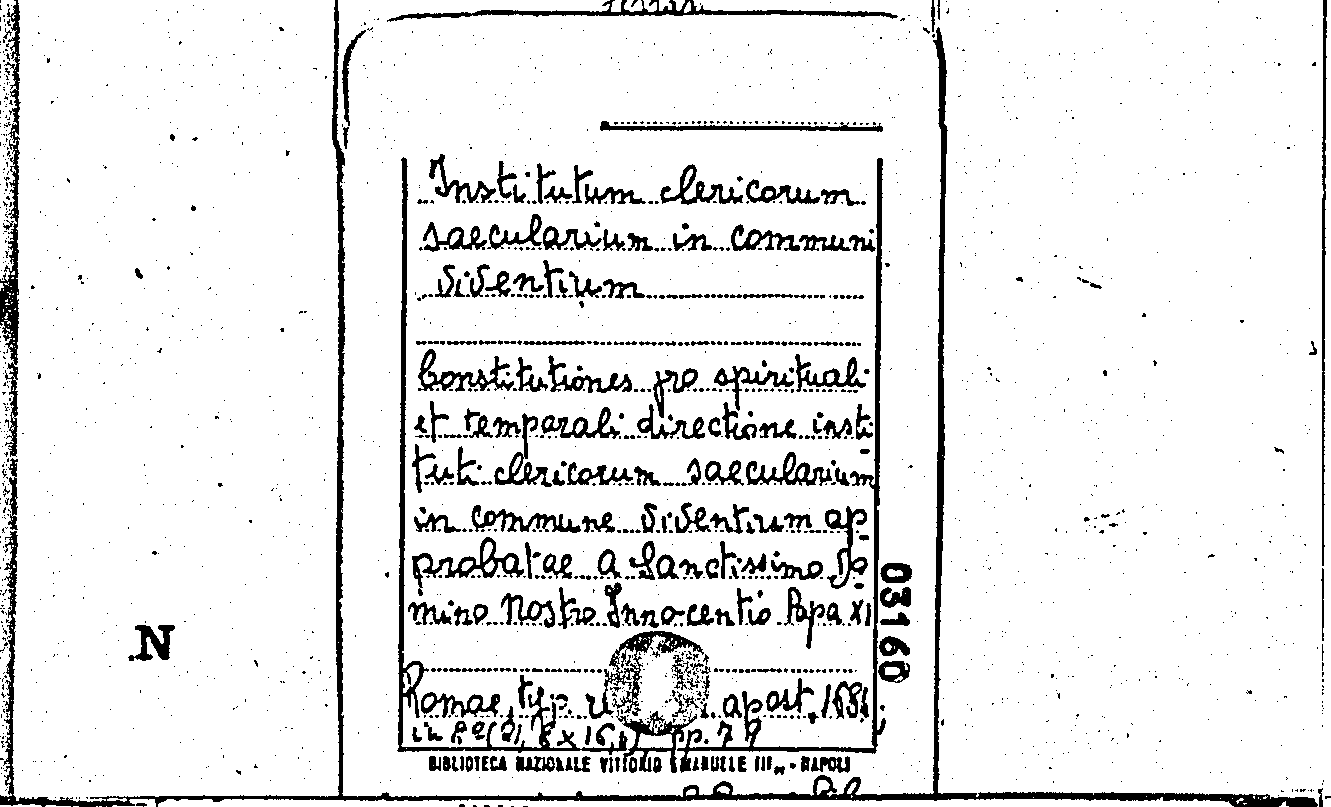 Institutum clericorum
saecularium in communi
viventium
Constitutiones pro spirituali
et temporali directione insti
tuti clericorum saecularium
in commune viventium ap-
probatae a Sanctissimo Do-
mino Nostro Innocentio Papa XI
Romae, typ. apost., 1684
in 8º pp. 79
BIBLIOTECA NAZIONALE VITTORIO EMANUELE III„ - NAPOLI
03160
N